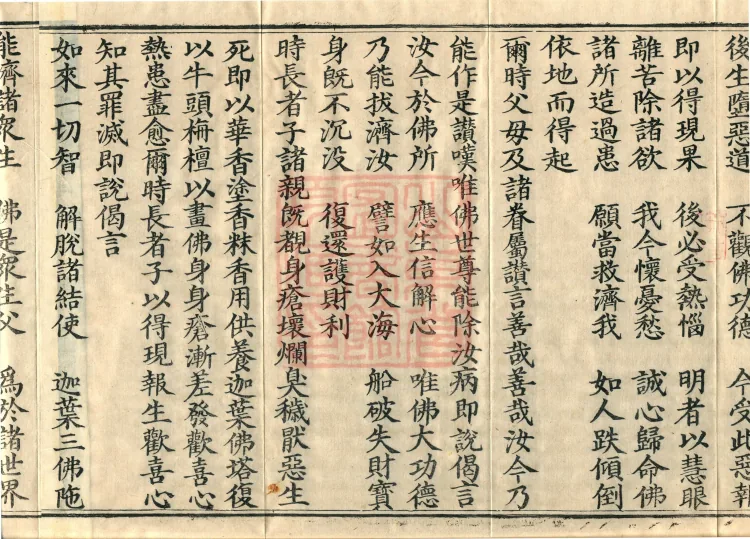 後生墮惡道　不觀佛功德　今受此惡報
即以得現果　後必受熱惱　明者以慧眼
離苦除諸欲　我今懷憂愁　誠心歸命佛
諸所造過患　願當救濟我　如人跌傾倒
依地而得起
爾時父母及諸眷屬讚言善哉善哉汝今乃
能作是讚嘆唯佛世尊能除汝病即說偈言
汝今於佛所　應生信解心　唯佛大功德
乃能拔濟汝　譬如入大海　船破失財寶
身既不沉没　復還護財利
時長者子諸親既覩身瘡壞爛臭穢猒惡生
死即以華香塗香粖香用供養迦葉佛塔復
以牛頭栴檀以畫佛身身瘡漸差發歡喜心
熱患盡愈爾時長者子以得現報生歡喜心
知其罪滅即說偈言
如來一切智　解脫諸結使　迦葉三佛陁
能濟諸衆生　佛是衆生父　爲於諸世界